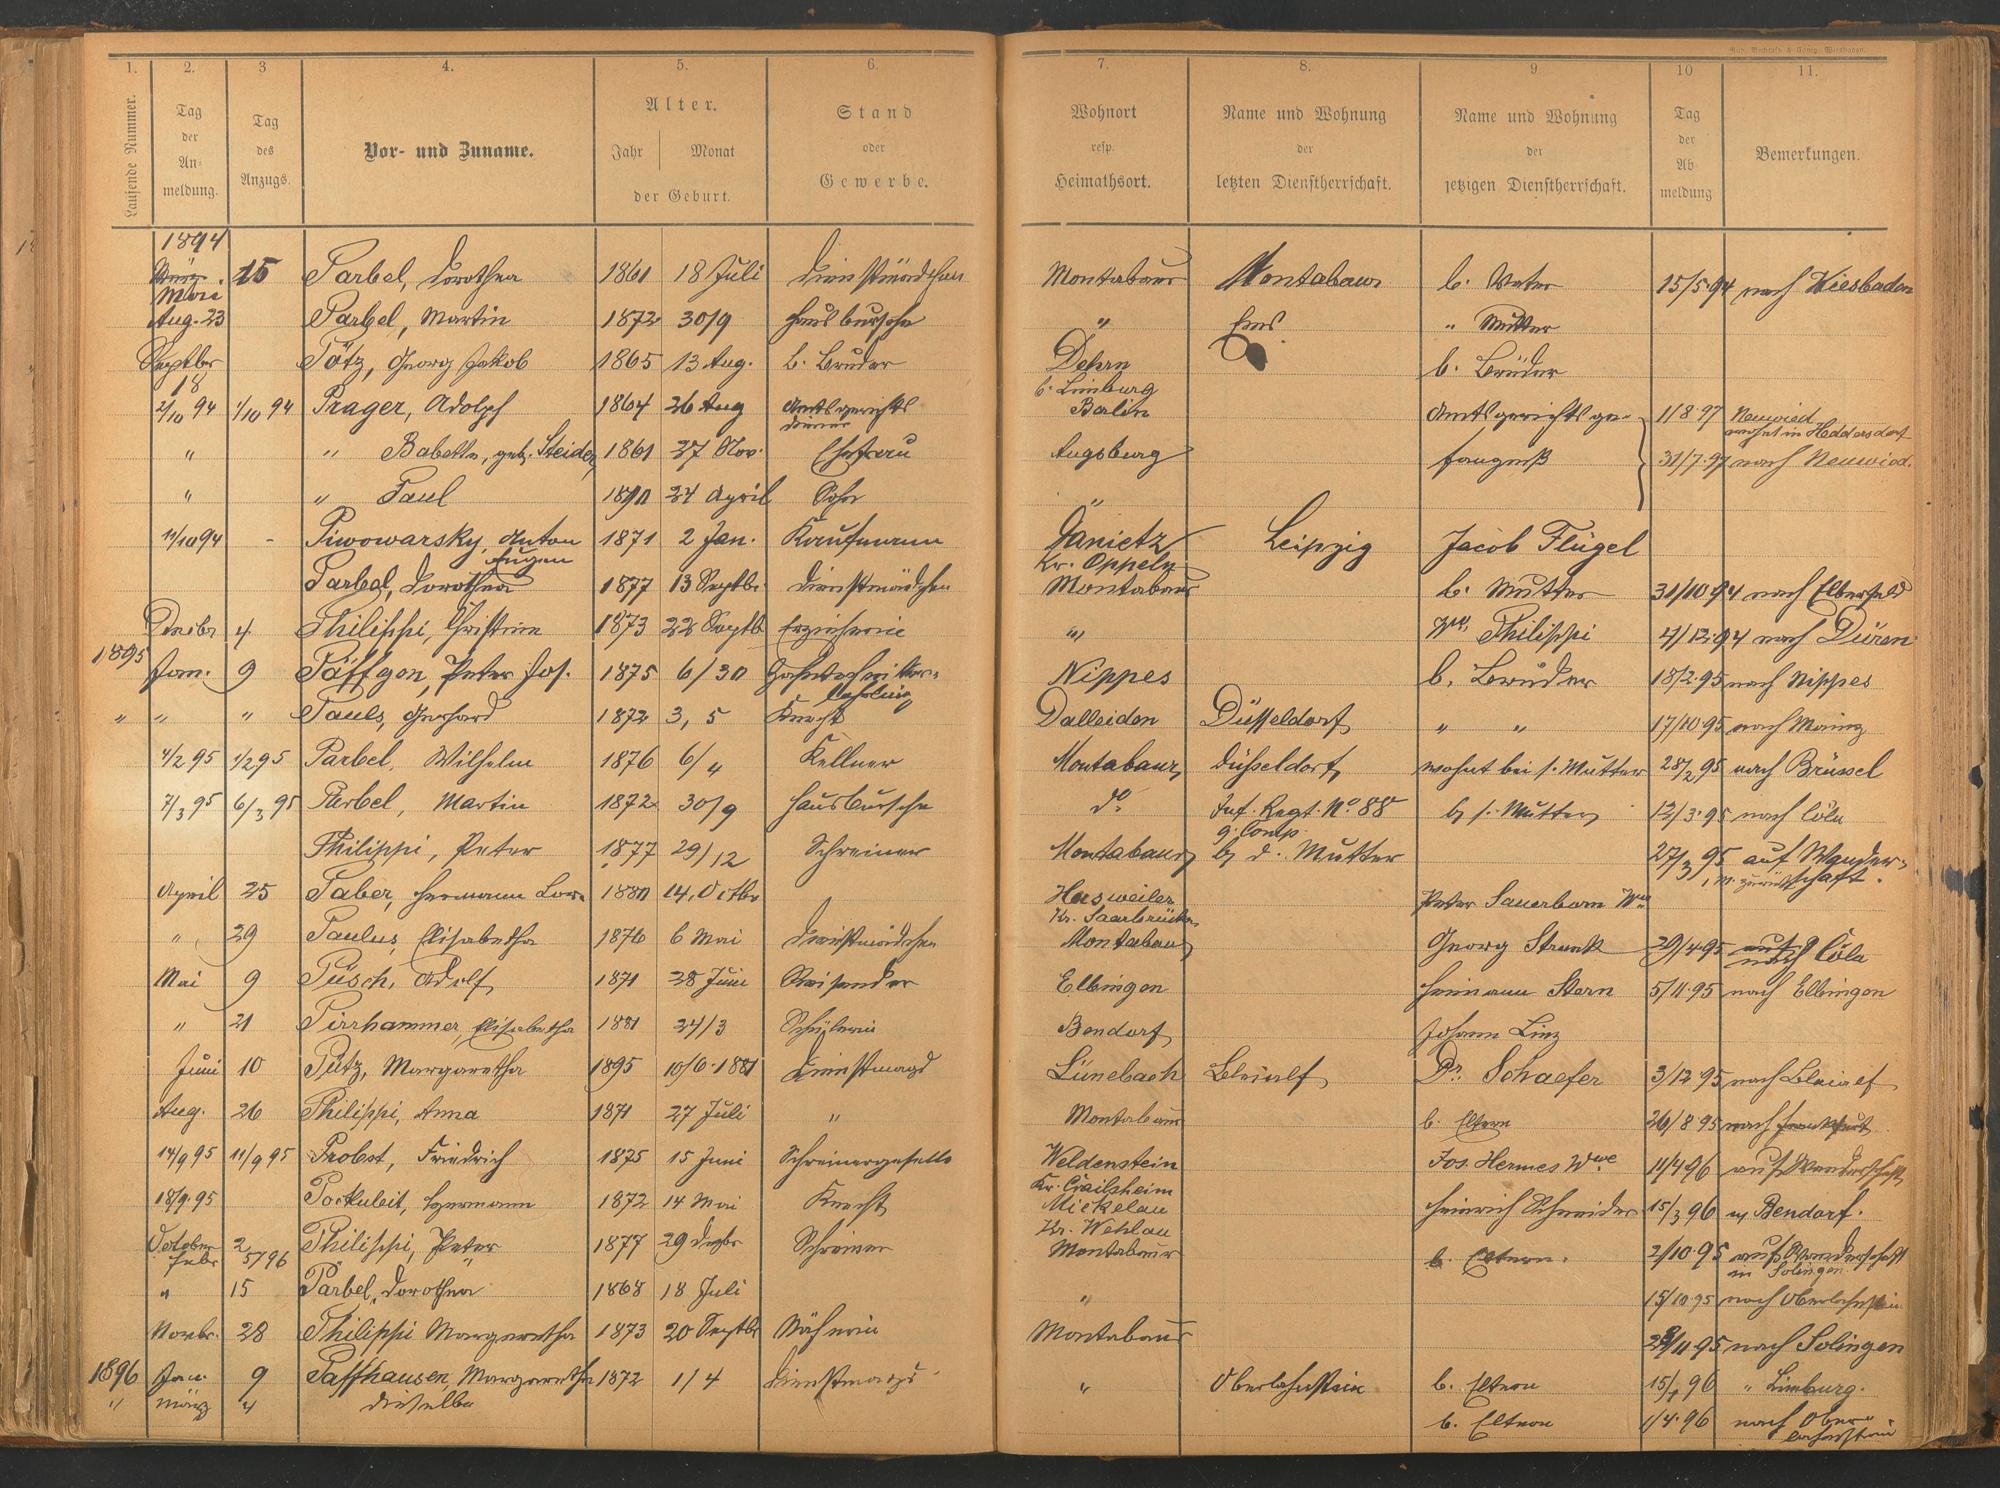 Rud. Bechtold & Comp. Wiesbaden.
1. 2. 3 4. 5. 6. 7. 8. 9 10 11.
Laufende Nummer. Tag der An- meldung. Tag des Anzugs. Vor- und Zuname. Alter. Jahr Monat der Geburt. Stand oder Gewerbe. Wohnort resp. Heimathsort. Name und Wohnung der letzten Dienstherrschaft. Name und Wohnung der jetzigen Dienstherrschaft. Tag der Ab meldung Bemerkungen.
1894
Mai 15 Parbel, Dorothea 1861 18 Juli Dienstmädchen Montabaur Montabaur b. Vater 15/5.94 nach Wiesbaden
Aug. 23 Parbel, Martin 1872 30/9 Hausbursche " Ems " Mutter
Septbr 18 Pötz, Georg Jakob 1865 13 Aug. b. Bruder Dehrn b. Limburg b. Bruder
2/10 94 1/10 94 Prager, Adolph 1864 26 Aug Amtsgerichts diener Berlin Amtsgerichtsge- 1/8.97 Neuwied wohnt in Heddersdorf
" " Babetta, geb. Steider 1861 27 Nov. Ehefrau Augsburg fängniß 31/7.97 nach Neuwied.
" " Paul 1890 24 April Sohn "
11/10 94 - Piwowarsky, Anton Eugen 1871 2 Jan. Kaufmann Kr. Oppeln Leipzig Jacob Flügel
Parbel, Dorothea 1877 13 Septbr. Dienstmädchen Montabaur b. Mutter 31/10.94 nach Elberfeld
Dezbr 4. Philippi, Christine 1873 22 Septb Erzieherin " Wwe Philippi 4/12.94 nach Düren
1895 Jan. 9 Päffgen, Peter Jos. 1875 6/30 Nippes b. Bruder 18/2.95 nach Nippes
" " " Pauls, Gerhard 1872 3, 5 Knecht Dalleiden Düsseldorf " " 17/10.95 nach Mainz
1/2 95 1/2 95 Parbel, Wilhelm 1876 6/4 Kellner Montabaur Düsseldorf wohnt bei s. Mutter 28/2 95 nach Brüssel
7/3 95 6/3 95 Parbel, Martin 1872 30/9 Hausbursche do Inf. Regt. No. 88 9. Comp. bj s. Mutter 12/3.95 nach Cöln
Philippi, Peter 1877 29/12 Schreiner Montabaur bj d. Mutter 27/3 95 auf Wander- schaft.
April 25 Faber, Hermann 1880 14. Octbr Kr. Saarbrücken Peter Sauerborn Wwe
" 29 Paulus, Elisabetha 1876 6 Mai Dienstmädchen Montabaur Georg Strunk 29/4.95 nach Cöln
Mai 9 Püsch, Adolf 1871 28 Juni Reisender Elbingen Hermann Stern 5/11.95 nach Elbingen
" 21 Pirrhammer, Elisabetha 1881 24/3 Schülerin Bendorf Johann Linz
Juni 10 Pütz, Margaretha 1895 10/6.1881 Dienstmagd Lünebach Bleialf Dr. Schaefer 3/12.95 nach Bleialf
Aug. 26 Philippi, Anna 1871 27 Juli " Montabaur b. Eltern 26/8.95 nach Frankfurt
14/9 95 11/9 95 Probst, Friedrich 1875 15 Juni Schreinergeselle Weldenstein Kr. Crailsheim Jos. Hermes Wwe 11/4 96 auf Wanderschaft
18/9.95 Pockuleit, Hermann 1872 14 Mai Knecht Mickelau Kr. Wehlau Heinrich Schneider 15/3 96 n/ Bendorf.
October 2 Philippi, Peter 1877 29 Dezbr Schreiner Montabaur b. Eltern. 2/10.95 auf Wanderschaft in Solingen
Febr 5/96 "
" 15 Parbel, Dorothea 1868 18 Juli " 15/10 95 nach Oberlahnstein
Novbr. 28 Philippi Margaretha 1873 20 Septbr Näherin Montabaur 28/11 95 nach Solingen
1896 Jan. 9 Paffhausen, Margaretha 1872 1/4 Dienstmagd " Oberlahnstein b. Eltern 15/1 96 " Limburg.
" März " dieselbe b. Eltern 1/4.96 nach Ober- lahnstein